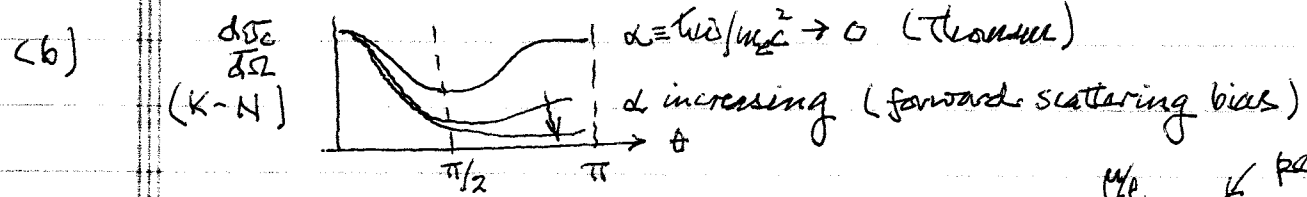 (b) dσc/dΩ α ≡ ħω/mec² → 0 (Thomson)
(K-N) α increasing (forward scattering bias)
θ
π/2 π μ/ρ